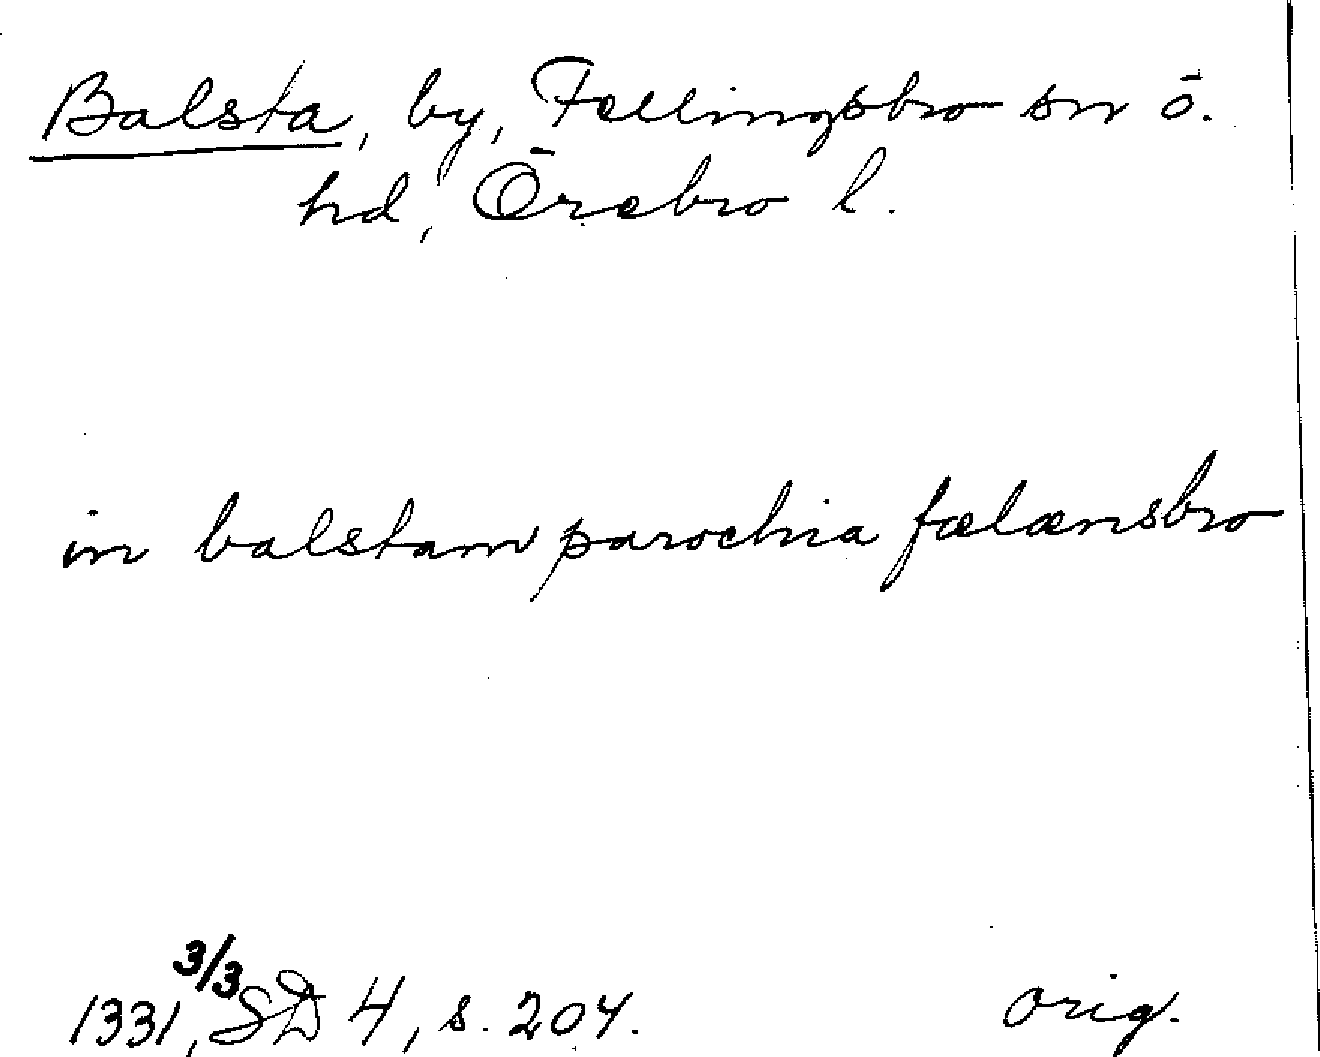 Balsta, by, Fellingsbro sn ö.
hd, Örebro l.
in balstam parochia fælænsbro
1331, 3/3 SD 4, s. 204.
orig.